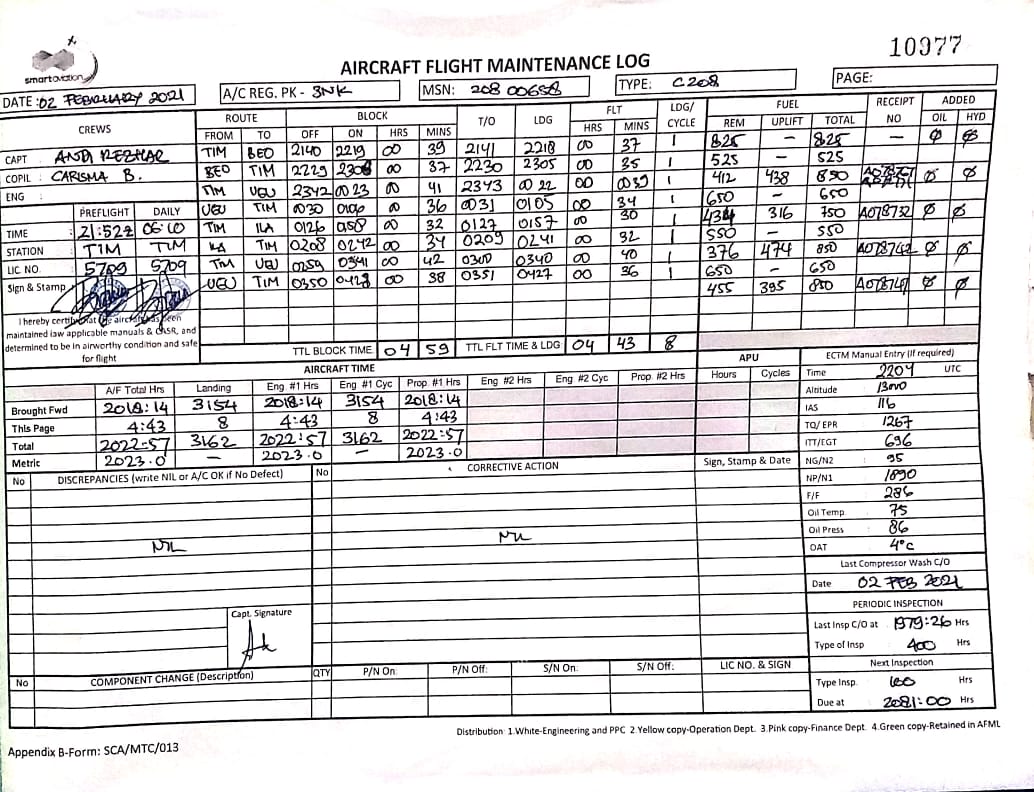 smartaviation
10977
AIRCRAFT FLIGHT MAINTENANCE LOG
DATE: 02 FEBRUARY 2021 A/C REG. PK - 3NK MSN: 208 00658 TYPE: C208 PAGE:
CREWS ROUTE BLOCK T/O LDG FLT LDG/CYCLE FUEL RECEIPT NO ADDED
FROM TO OFF ON HRS MINS HRS MINS REM UPLIFT TOTAL OIL HYD
CAPT : TIM BEO 2140 2219 00 39 2141 2218 00 37 1 825 - 825 - Ø Ø
COPIL : CARISMA B. BEO TIM 2229 2306 00 37 2230 2305 00 35 1 525 - 525
ENG : TIM UGU 2342 0023 00 41 2343 0022 00 0039 1 412 438 850 Ø Ø
UGU TIM 0030 0106 00 36 0031 0105 00 34 1 650 - 650
PREFLIGHT DAILY
TIME 21:52Z 06:10 TIM ILA 0126 0158 00 32 0127 0157 00 30 1 434 316 750 A078732 Ø Ø
STATION TIM TIM ILA TIM 0208 0242 00 34 0209 0241 00 32 1 550 - 550
LIC NO. 5709 5709 TIM UGU 0259 0341 00 42 0300 0340 00 40 1 376 474 850 A078742 Ø Ø
Sign & Stamp UGU TIM 0350 0428 00 38 0351 0427 00 36 1 650 - 650
455 395 850 A078747 Ø Ø
I hereby certify that the aircraft has been
maintained iaw applicable manuals & CASR, and
determined to be in airworthy condition and safe
for flight
TTL BLOCK TIME 04 59 TTL FLT TIME & LDG 04 43 8
AIRCRAFT TIME APU ECTM Manual Entry (If required)
A/F Total Hrs Landing Eng #1 Hrs Eng #1 Cyc Prop #1 Hrs Eng #2 Hrs Eng #2 Cyc Prop #2 Hrs Hours Cycles Time 2204 UTC
Brought Fwd 2018:14 3154 2018:14 3154 2018:14 Altitude
This Page 4:43 8 4:43 8 4:43 IAS 116
Total 2022-57 3162 2022:57 3162 2022:57 TQ/EPR 1267
Metric 2023.0 - 2023.0 - 2023.0 ITT/EGT 696
No DISCREPANCIES (write NIL or A/C OK if No Defect) No CORRECTIVE ACTION Sign, Stamp & Date NG/N2 : 95
NP/N1 1890
F/F : 286
Oil Temp 75
NIL NIL Oil Press : 86
OAT 4°C
Last Compressor Wash C/O
Date 02 FEB 2021
PERIODIC INSPECTION
Capt. Signature Last Insp C/O at 1979:26 Hrs
Type of Insp 400 Hrs
Next Inspection
No COMPONENT CHANGE (Description) QTY P/N On: P/N Off: S/N On: S/N Off: LIC NO. & SIGN
Type Insp. 100 Hrs
Due at 2081:00 Hrs
Distribution: 1.White-Engineering and PPC 2.Yellow copy-Operation Dept. 3.Pink copy-Finance Dept. 4.Green copy-Retained in AFML
Appendix B-Form: SCA/MTC/013